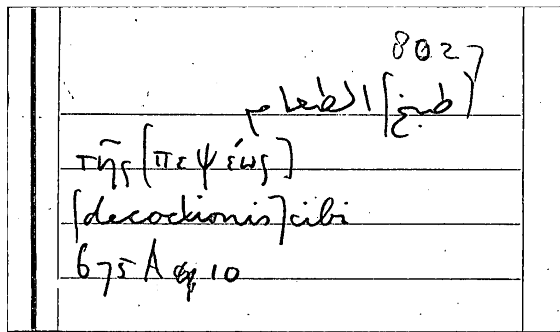 8027
[طبخ] الطعام
τῆς [πεψέως]
[decoctionis] cibi
675 A 10